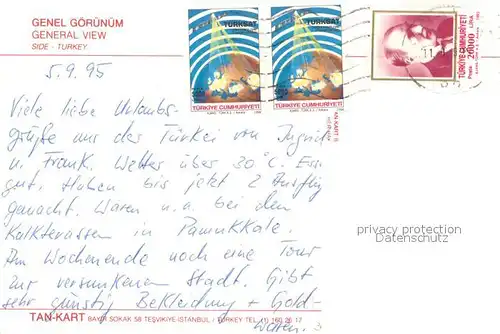 GENEL GÖRÜNÜM
GENERAL VIEW
SIDE - TURKEY
TÜRKSAT
TÜRKİYE CUMHURİYETİ
TÜRKSAT
TÜRKİYE CUMHURİYETİ
TÜRKİYE CUMHURİYETİ
Posta 20000 LİRA
11
TAN-KART
5.9.95
Viele liebe Urlaubs-
grüße aus der Türkei von Ingrid
u. Frank. Wetter über 30°C. Essen
gut. Haben bis jetzt 2 Ausflüg
gemacht. Waren u.a. bei den
Kalkterassen in Pamukkale.
Am Wochenende noch eine Tour
zur versunkenen Stadt. Gibt
sehr günstig Bekleidung + Gold-
waren.
privacy protection
Datenschutz
TAN-KART BAYIR SOKAK 58 TEŞVİKİYE-İSTANBUL / TURKEY TEL. (1) 160 26 17